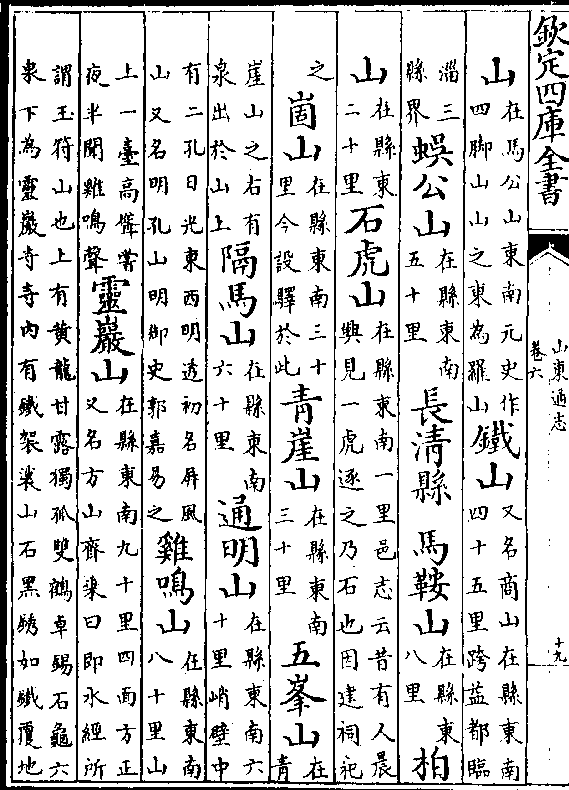 欽定四庫全書
山東通志
卷六
十九
山在馬公山東南元史作四脚山山之東為羅山鐵山又名商山在縣東南四十五里跨益都臨
淄三縣界蜈公山在縣東南五十里 長清縣 馬鞍山在縣東八里 柏
山在縣東二十里石虎山在縣東南一里邑志云昔有人晨興見一虎逐之乃石也因建祠祀
之 崮山在縣東南三十里今設驛於此青崖山在縣東南三十里 五峯山在青
崖山之右有泉出於山上隔馬山在縣東南六十里 通明山在縣東南六十里峭壁中
有二孔日光東西明透初名屏風山又名明孔山明御史郭嘉易之雞鳴山在縣東南八十里山
上一臺高聳嘗夜半聞雞鳴聲靈巖山在縣東南九十里四面方正又名方山齊乘曰即水經所
謂玉符山也上有黄龍甘露獨孤雙鶴卓錫石龜六泉下為靈巖寺寺内有鐵袈裟山石黑銹如鐵覆地